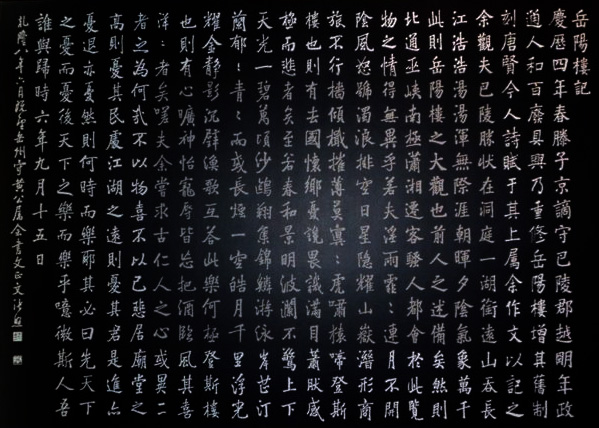 岳陽樓記
慶曆四年春滕子京謫守巴陵郡越明年政
通人和百廢具興乃重修岳陽樓增其舊制
刻唐賢今人詩賦于其上屬余作文以記之
余觀夫巴陵勝狀在洞庭一湖銜遠山吞長
江浩浩湯湯渾無際涯朝暉夕陰氣象萬千
此則岳陽樓之大觀也前人之述備矣然則
北通巫峽南極瀟湘遷客騷人都會於此覽
物之情得無異乎若夫淫雨霏〻連月不開
陰風怒號濁浪排空日星隱耀山嶽潛形商
旅不行檣傾檝摧薄暮冥〻虎嘯猿啼登斯
樓也則有去國懷鄉憂讒畏譏滿目蕭然感
極而悲者矣至若春和景明波瀾不驚上下
天光一碧萬頃沙鷗翔集錦鱗游泳岸芷汀
蘭郁〻青〻而或長煙一空皓月千里浮光
耀金靜影沉璧漁歌互答此樂何極登斯樓
也則有心曠神怡寵辱皆忘把酒臨風其喜
洋〻者矣嗟夫余嘗求古仁人之心或異二
者之為何哉不以物喜不以己悲居廟堂之
高則憂其民處江湖之遠則憂其君是進亦
憂退亦憂然則何時而樂耶其必曰先天下
之憂而憂後天下之樂而樂乎噫微斯人吾
誰與歸時六年九月十五日
乾隆八年六月岳州守黃公屬余書文正文張照